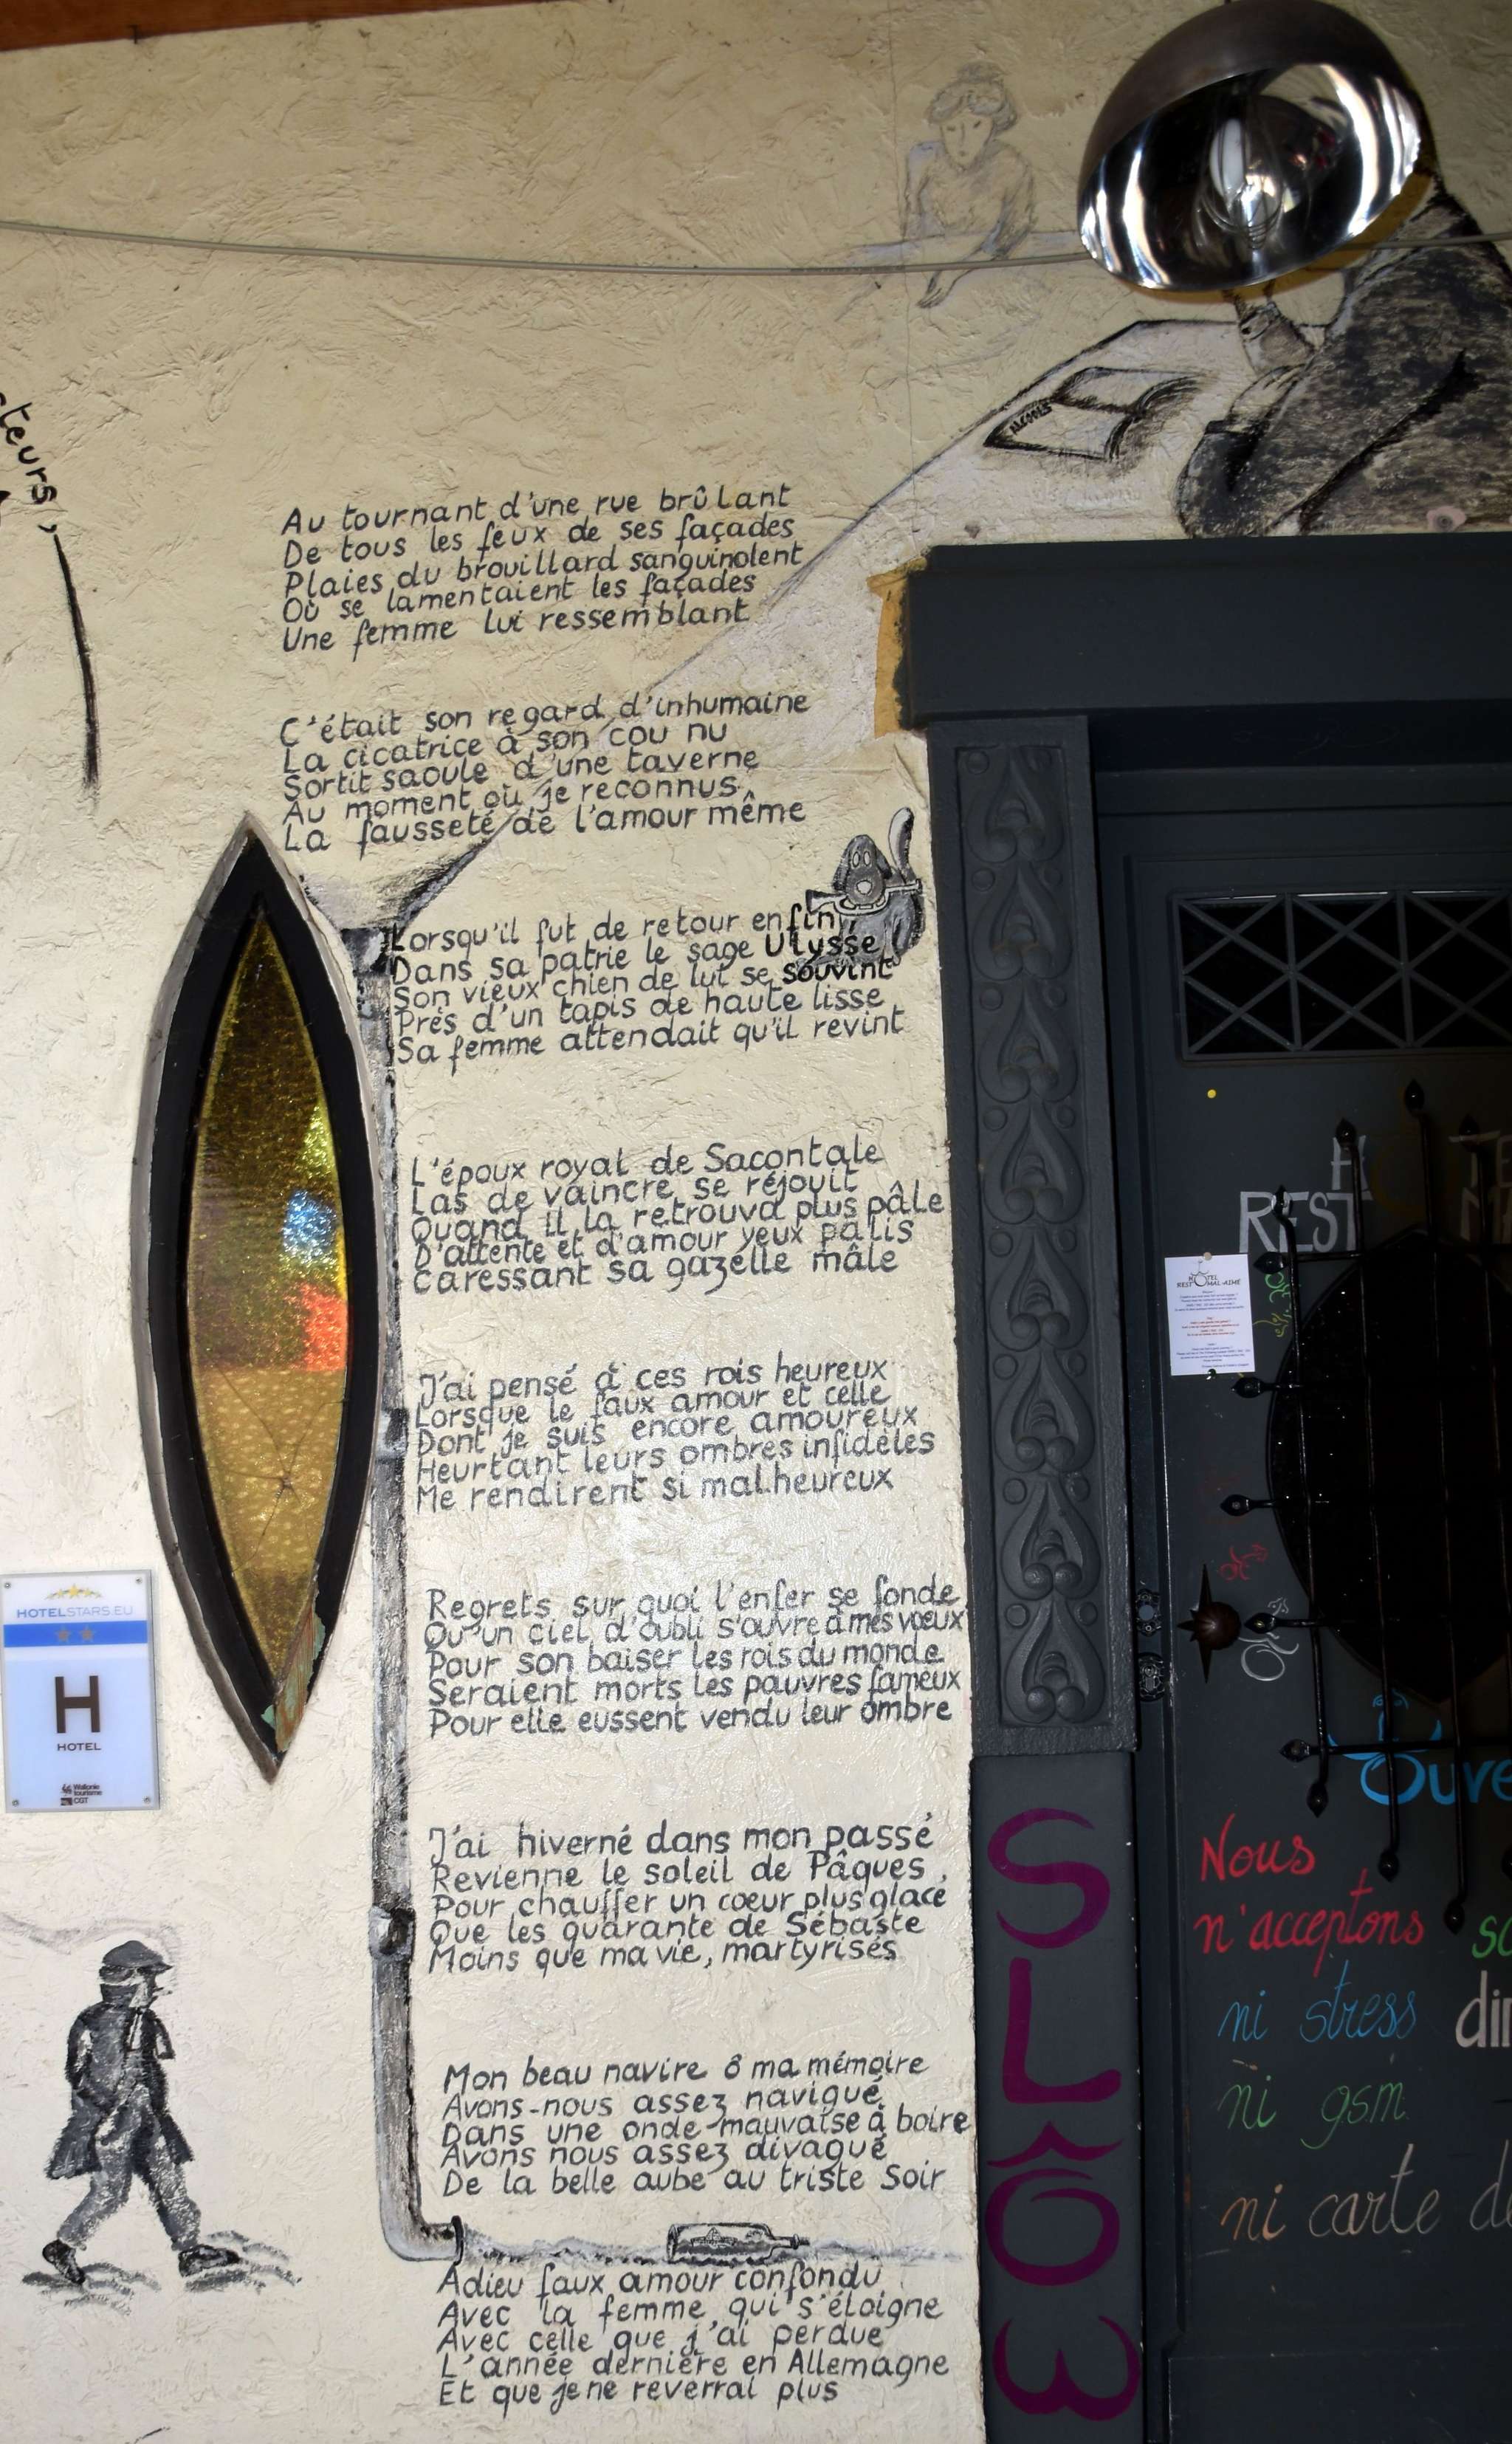 cteurs,
ALCOOLS
Au tournant d'une rue brûlant
De tous les feux de ses façades
Plaies du brouillard sanguinolent
Où se lamentaient les façades
Une femme lui ressemblant
C'était son regard d'inhumaine
La cicatrice à son cou nu
Sortit saoule d'une taverne
Au moment où je reconnus
La fausseté de l'amour même
Lorsqu'il fut de retour enfin
Dans sa patrie le sage Ulysse
Son vieux chien de lui se souvint
Près d'un tapis de haute lisse
Sa femme attendait qu'il revint
L'époux royal de Sacontale
Las de vaincre se réjouit
Quand il la retrouva plus pâle
D'attente et d'amour yeux pâlis
Caressant sa gazelle mâle
J'ai pensé à ces rois heureux
Lorsque le faux amour et celle
Dont je suis encore amoureux
Heurtant leurs ombres infidèles
Me rendirent si malheureux
Regrets sur quoi l'enfer se fonde
Qu'un ciel d'oubli s'ouvre à mes vœux
Pour son baiser les rois du monde
Seraient morts les pauvres fameux
Pour elle eussent vendu leur ombre
J'ai hiverné dans mon passé
Revienne le soleil de Pâques
Pour chauffer un coeur plus glacé
Que les quarante de Sébaste
Moins que ma vie, martyrisés
Mon beau navire ô ma mémoire
Avons-nous assez navigué
Dans une onde mauvaise à boire
Avons nous assez divagué
De la belle aube au triste soir
Adieu faux amour confondu
Avec la femme qui s'éloigne
Avec celle que j'ai perdue
L'année dernière en Allemagne
Et que je ne reverrai plus
HOTELSTARS.EU
H
HOTEL
Wallonie
tourisme
CGT
H TE
REST M
HOTEL
REST MAL-AIMÉ
Ouve
Nous
n'acceptons
ni stress
ni gsm
ni carte de
so
din
SLOW